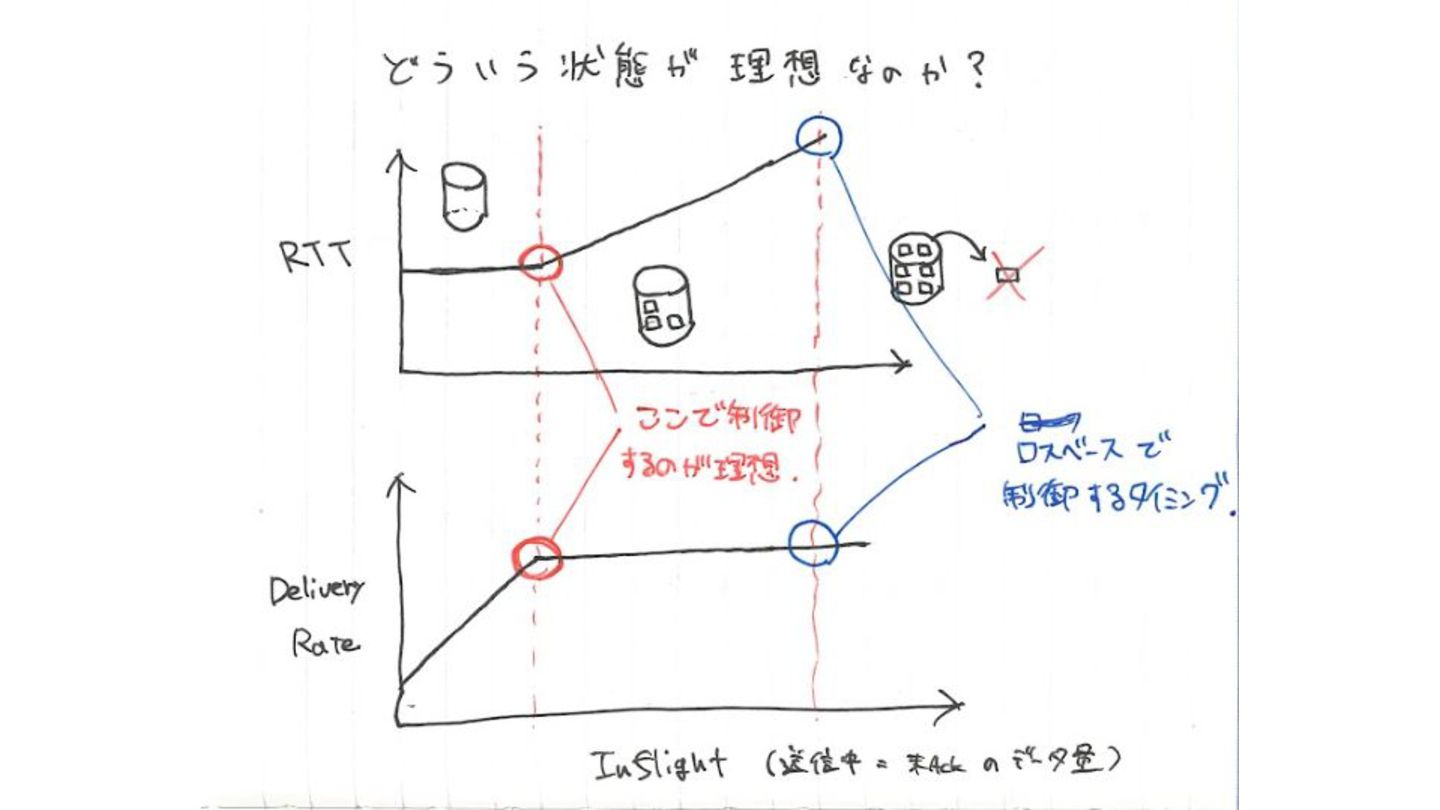 どういう状態が理想なのか?
RTT
ここで制御
するのが理想.
ロスベースで
制御するタイミング.
Delivery
Rate
Inflight (送信中 = 未Ackのデータ量)